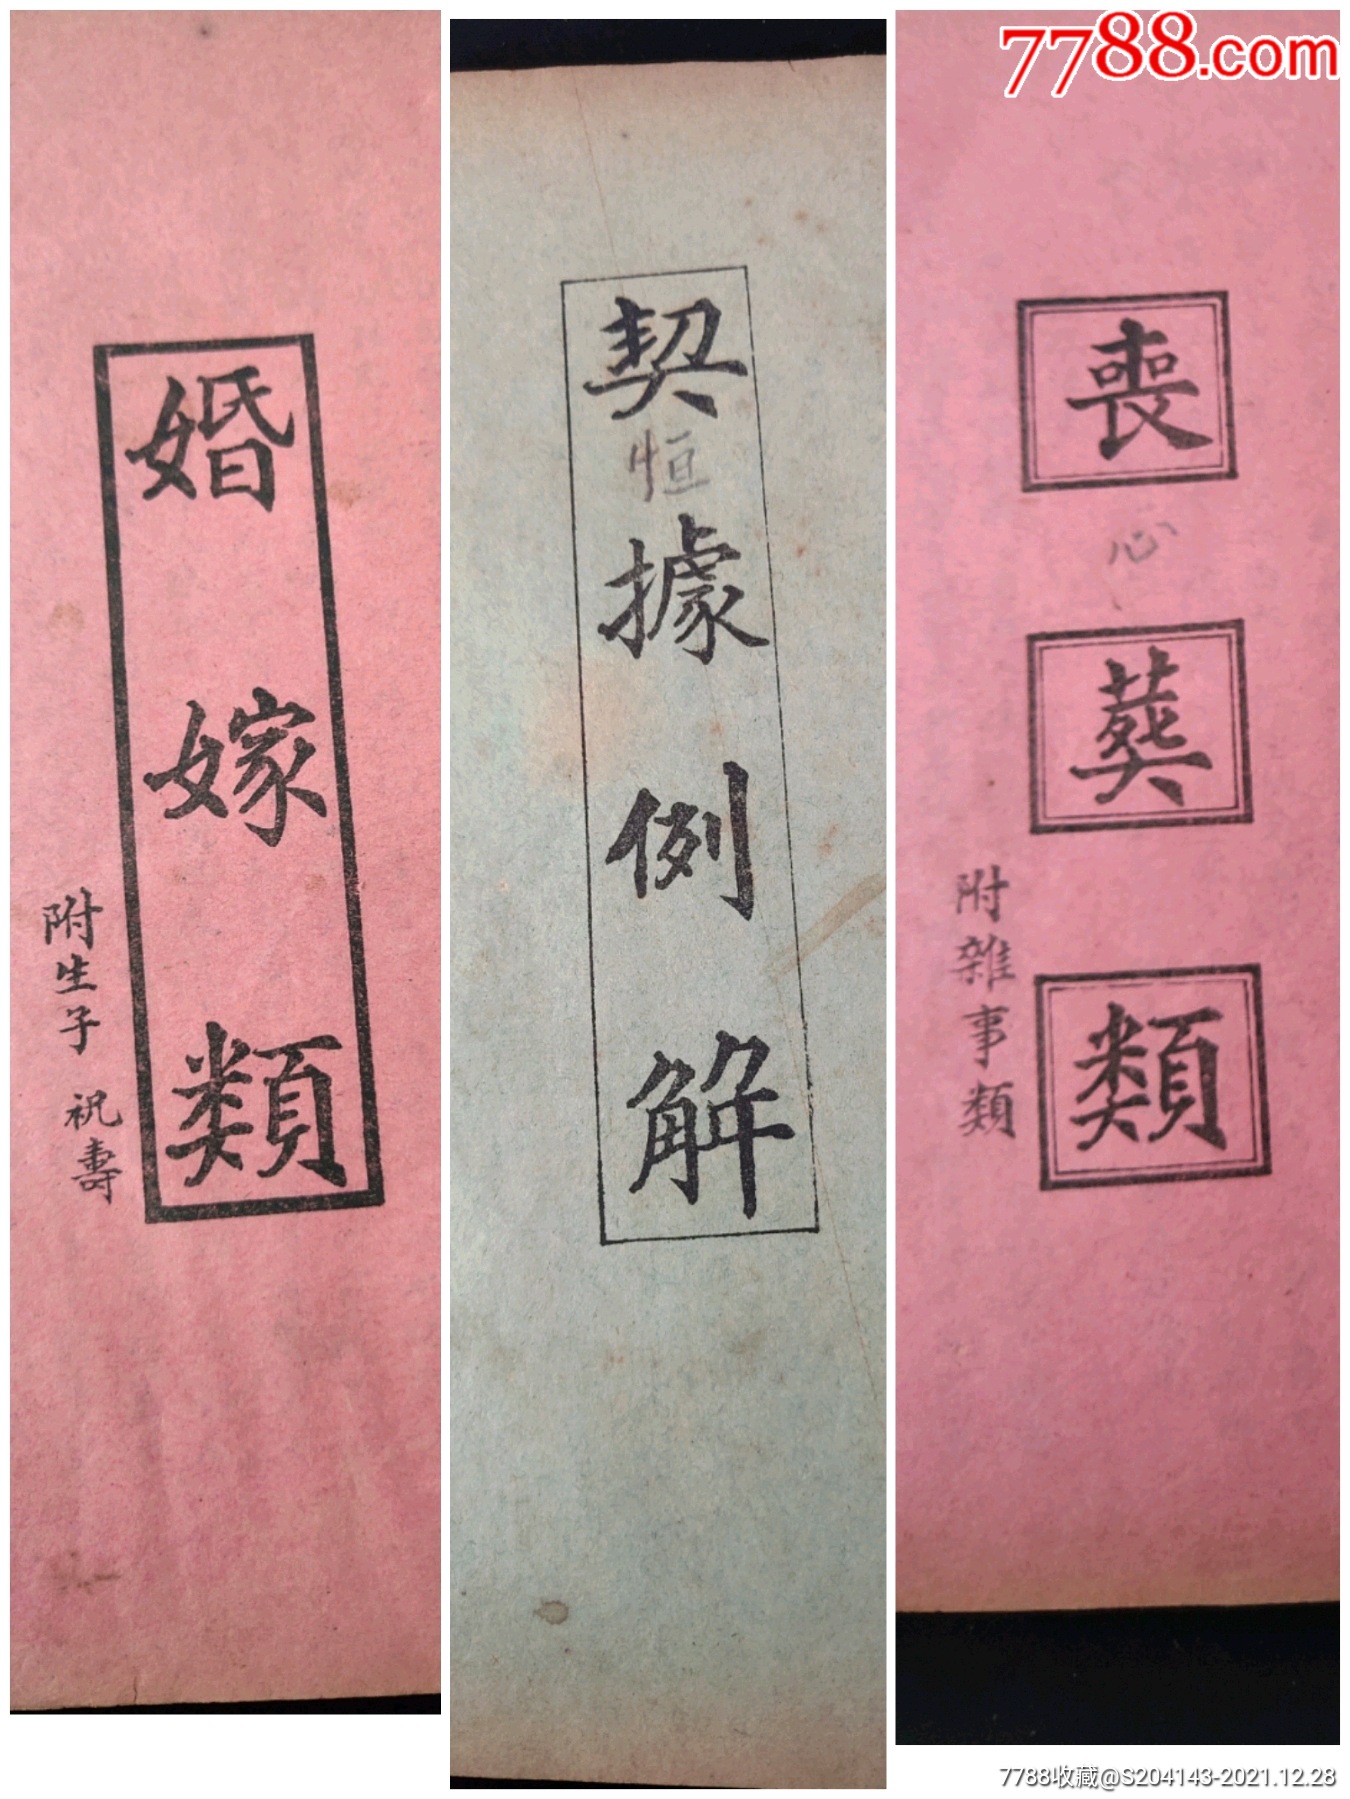 婚嫁類
附生子 祝壽
契據例解
恒
喪葬類
心
附雜事類
7788.com
7788收藏@S204143-2021.12.28